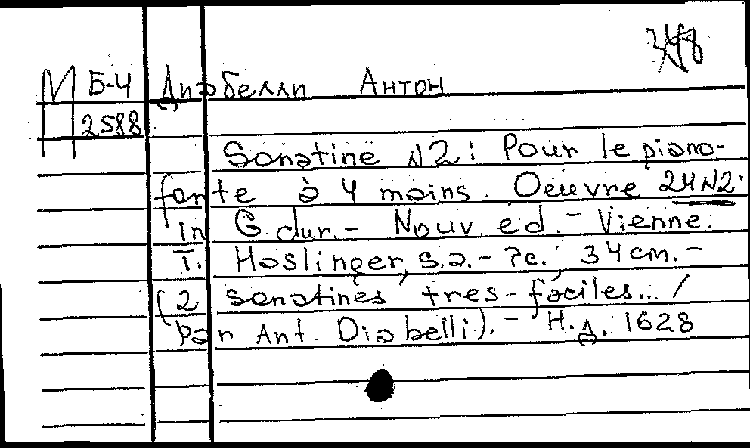 М Б-4 Диабелли Антон
2588
Sonatine N2: Pour le piano-
forte à 4 mains. Oeuvre 24 N2.
In G dur. - Nouv. ed. - Vienne.
T. Haslinger, s.a. - 7c.; 34 cm. -
(2 sonatines tres-faciles... /
par Ant. Diabelli). - Н.д. 1628